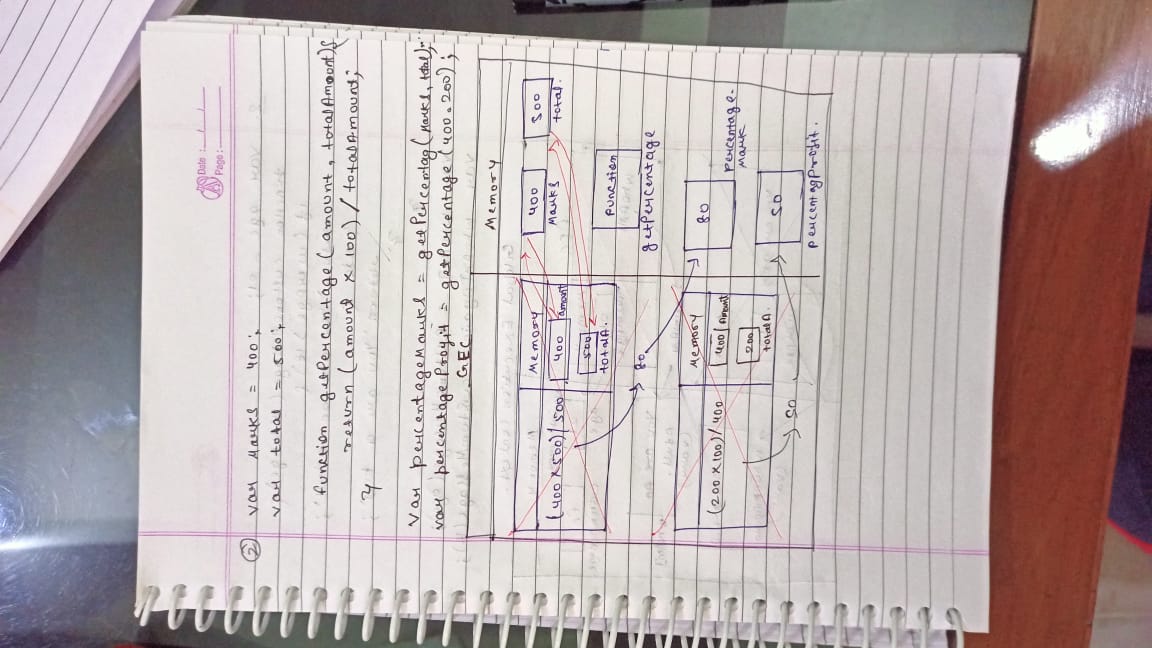 Date :
Page :
② var Marks = 400;
var total = 500;
function getPercentage (amount, totalAmount){
return (amount x 100) / totalAmount;
}
var percentageMarks = getPercentag (Marks, total);
var percentage Profit = getPercentage (400, 200);
GEC
Memory
400
Marks
500
total.
Function
getPercentage
80
percentage.
Mark
50
percentagProfit.
Memory
400
amount
500
totalA.
(400 x 500) / 500
80
Memory
400
Amount
200
totalA.
(200 x 100) / 400
50